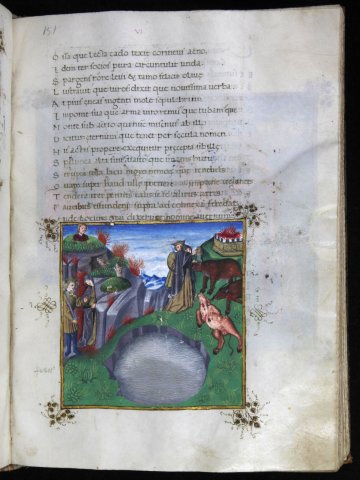 151 VI
O ssa que lecta cado texit corineus aeno.
I dem ter socios pura circumtulit unda.
S pargens rore leui & ramo felicis oliue
L ustrauit que uiros dixit que nouissima uerba.
A t pius eneas ingenti mole sepulcrum
I mponit sua que arma uiro remum que tubam que
M onte sub aerio qui nunc misenus ab illo
D icitur eternum que tenet per secula nomen
H is actis propere exequitur precepta sibille.
S pelunca alta fuit uasto que immanis hiatu
S crupea tuta lacu nigro nemorum que tenebris
Q uam super haud ulle poterant impune uolantes
T endere iter pennis talis sese halitus atris
F aucibus effundens supera ad conuexa ferebat
V nde locum grai dixerunt nomine auernum